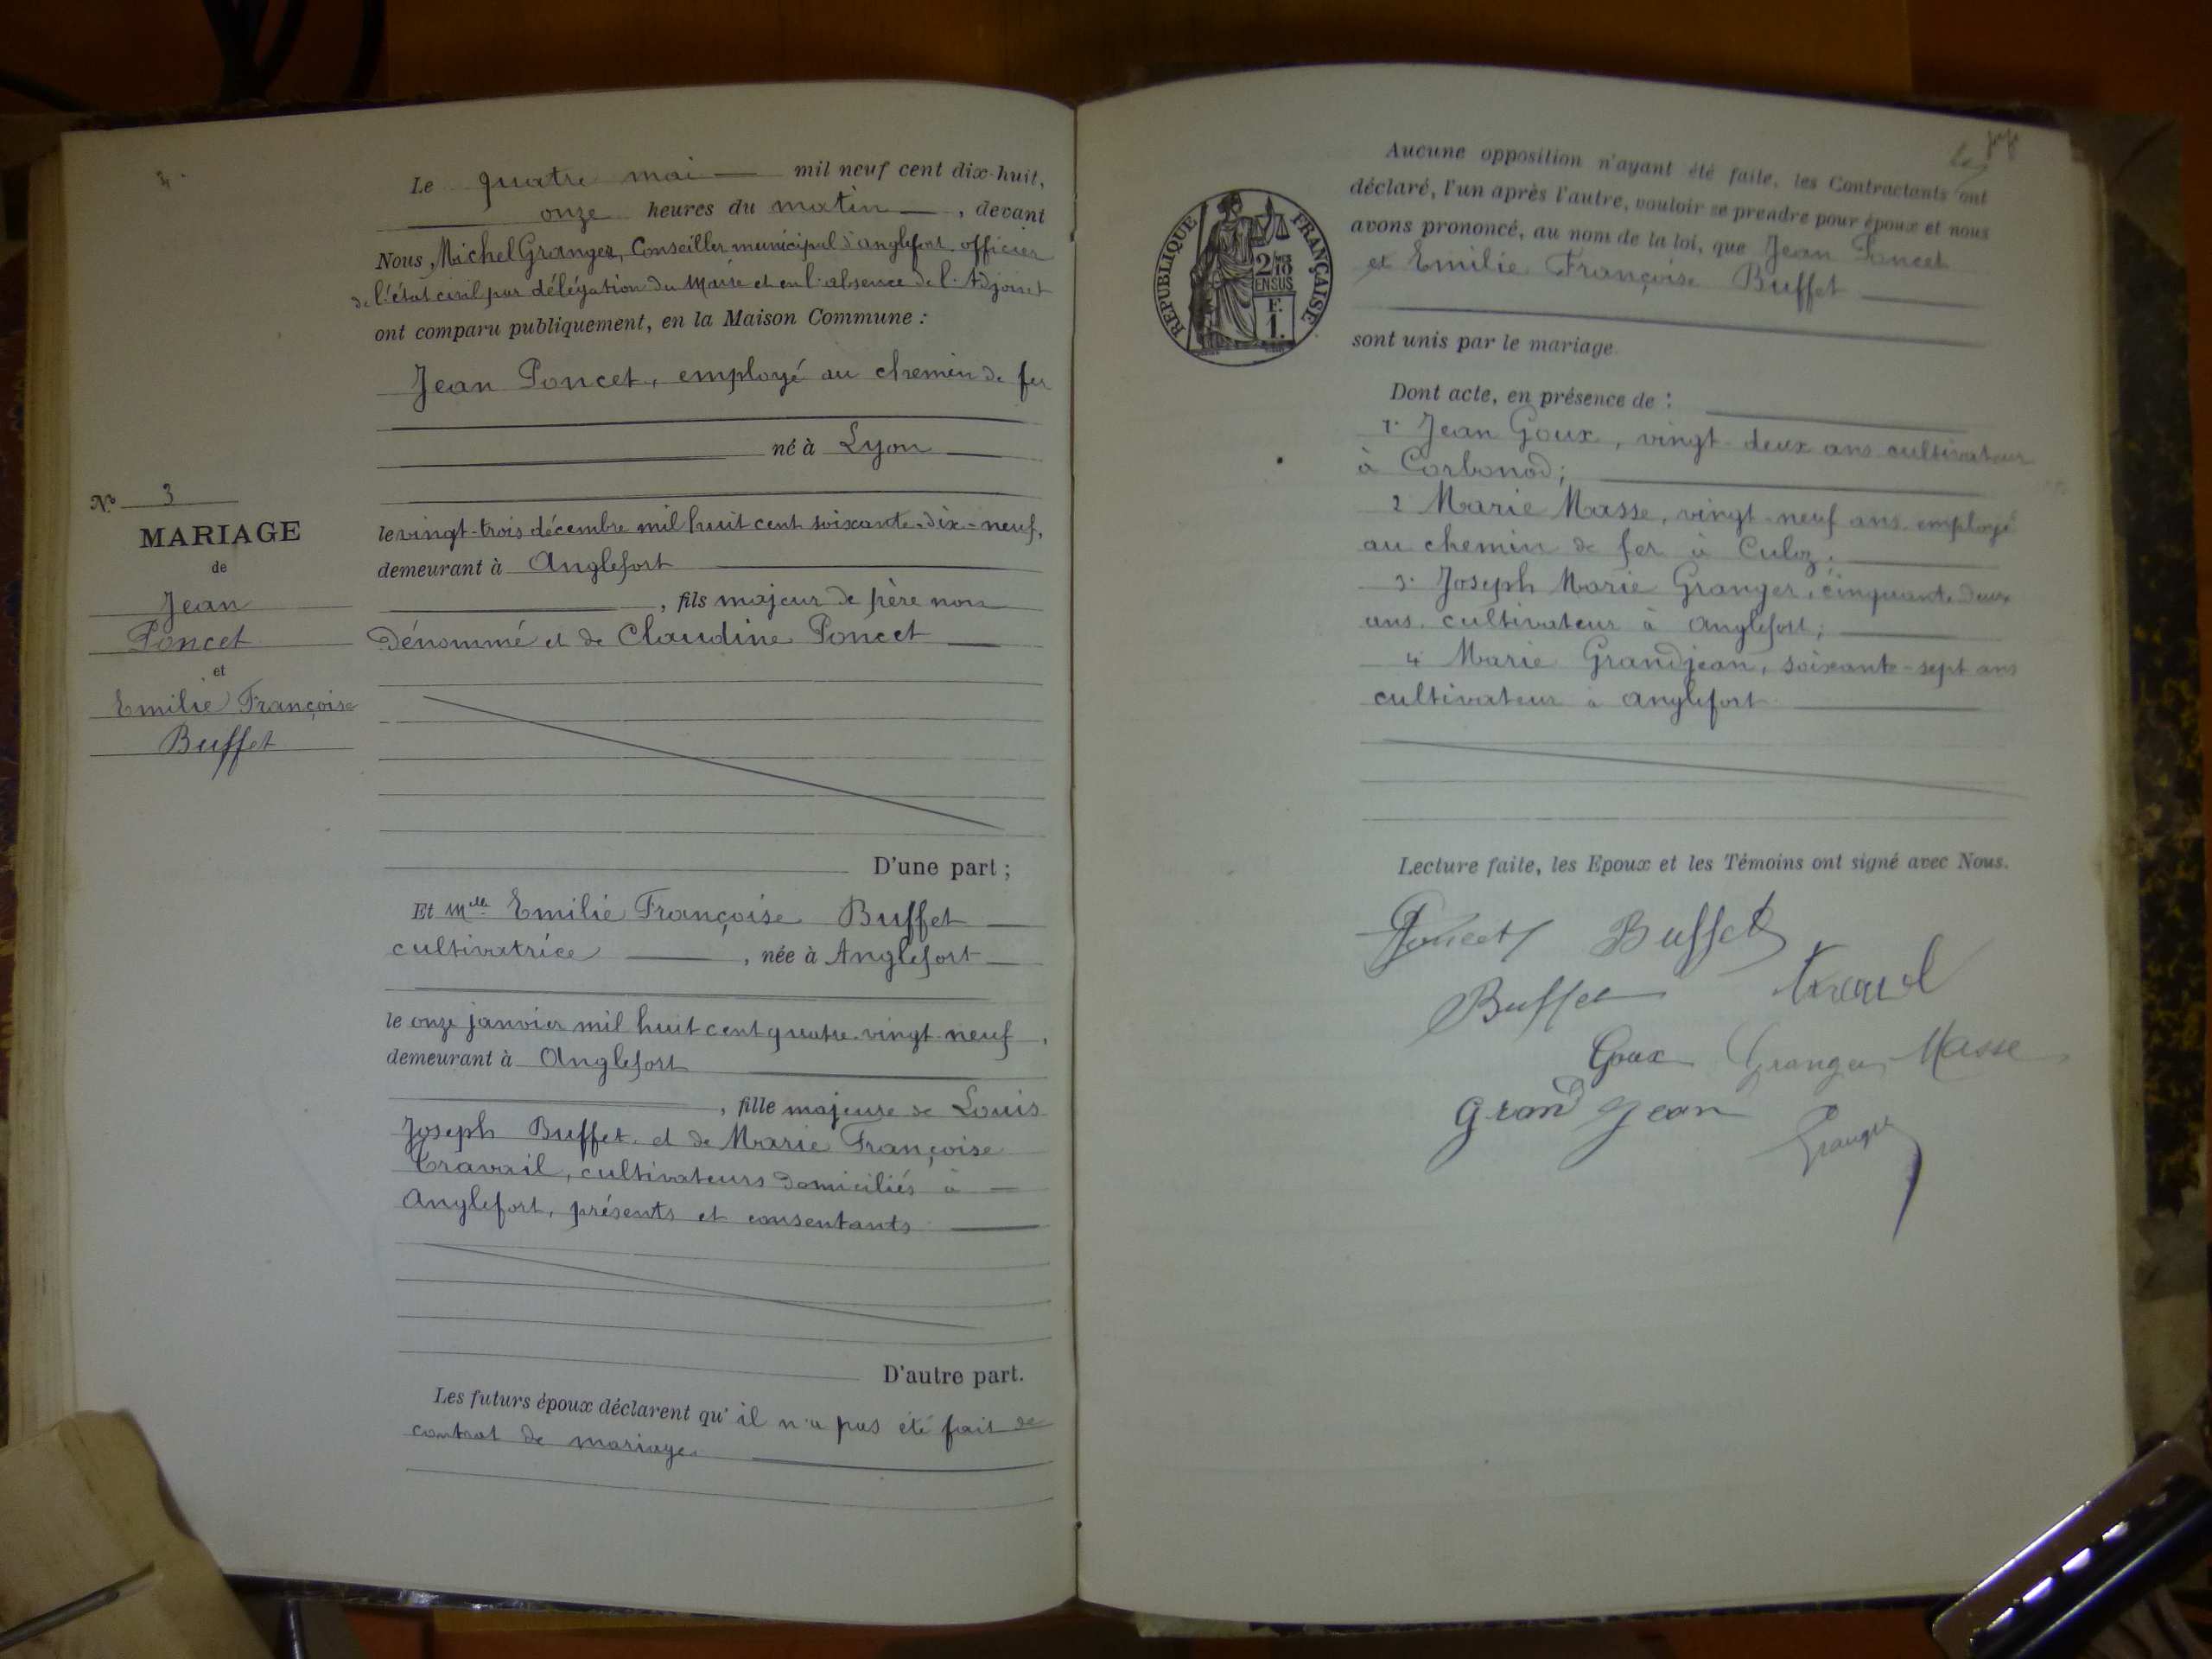 Le quatre mai mil neuf cent dix-huit,
onze heures du matin, devant
Nous, Michel Granger, Conseiller municipal d'anglefort officier
de l'état civil par délégation du Maire et en l'absence de l'Adjoint
ont comparu publiquement, en la Maison Commune :
Jean Poncet, employé au chemin de fer
né à Lyon
le vingt-trois décembre mil huit cent soixante-dix-neuf,
demeurant à Anglefort
, fils majeur de père non
dénommé et de Claudine Poncet
N° 3
MARIAGE
de
Jean
Poncet
et
Emilie Françoise
Buffet
D'une part ;
Et Mlle Emilie Françoise Buffet
cultivatrice, née à Anglefort
le onze janvier mil huit cent quatre-vingt-neuf,
demeurant à Anglefort
, fille majeure de Louis
Joseph Buffet et de Marie Françoise
Travail, cultivateurs domiciliés à
Anglefort, présents et consentants
D'autre part.
Les futurs époux déclarent qu'il n'a pas été fait de
contrat de mariage
Aucune opposition n'ayant été faite, les Contractants ont
déclaré, l'un après l'autre, vouloir se prendre pour époux et nous
avons prononcé, au nom de la loi, que Jean Poncet
et Emilie Françoise Buffet
sont unis par le mariage.
RÉPUBLIQUE FRANÇAISE
2/10
EN SUS
F.
1.
Dont acte, en présence de :
1. Jean Goux, vingt-deux ans cultivateur
à Corbonod;
2 Marie Masse, vingt-neuf ans employé
au chemin de fer à Culoz;
3. Joseph Marie Granger, cinquante-deux
ans cultivateur à anglefort;
4 Marie Grandjean, soixante-sept ans
cultivateur à anglefort
Lecture faite, les Epoux et les Témoins ont signé avec Nous.
Poncet Buffet
Buffet
Goux Granger Masse
Grand jean
Granger